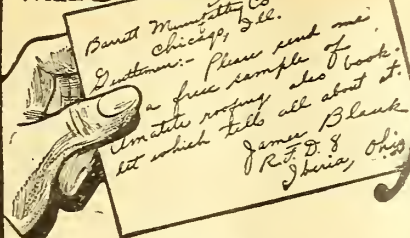 Barrett Manufacturing Co
Chicago, Ill.
Gentlemen:- Please send me
a free sample of
Amatite roofing also book-
let which tells all about it.
James Blank
R.F.D. 8
Iberia, Ohio